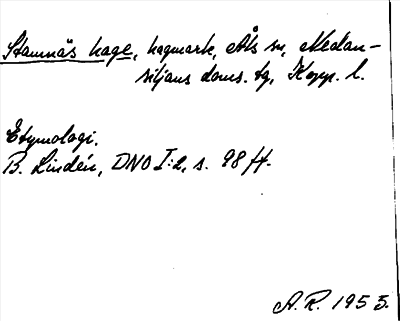 Stamnäs hage, hagmark, Ås sn, Nedan-
siljans doms. tg, Kopp. l.
Etymologi.
B. Lindén, DNO I:2, s. 98 ff.
A.R. 1953.